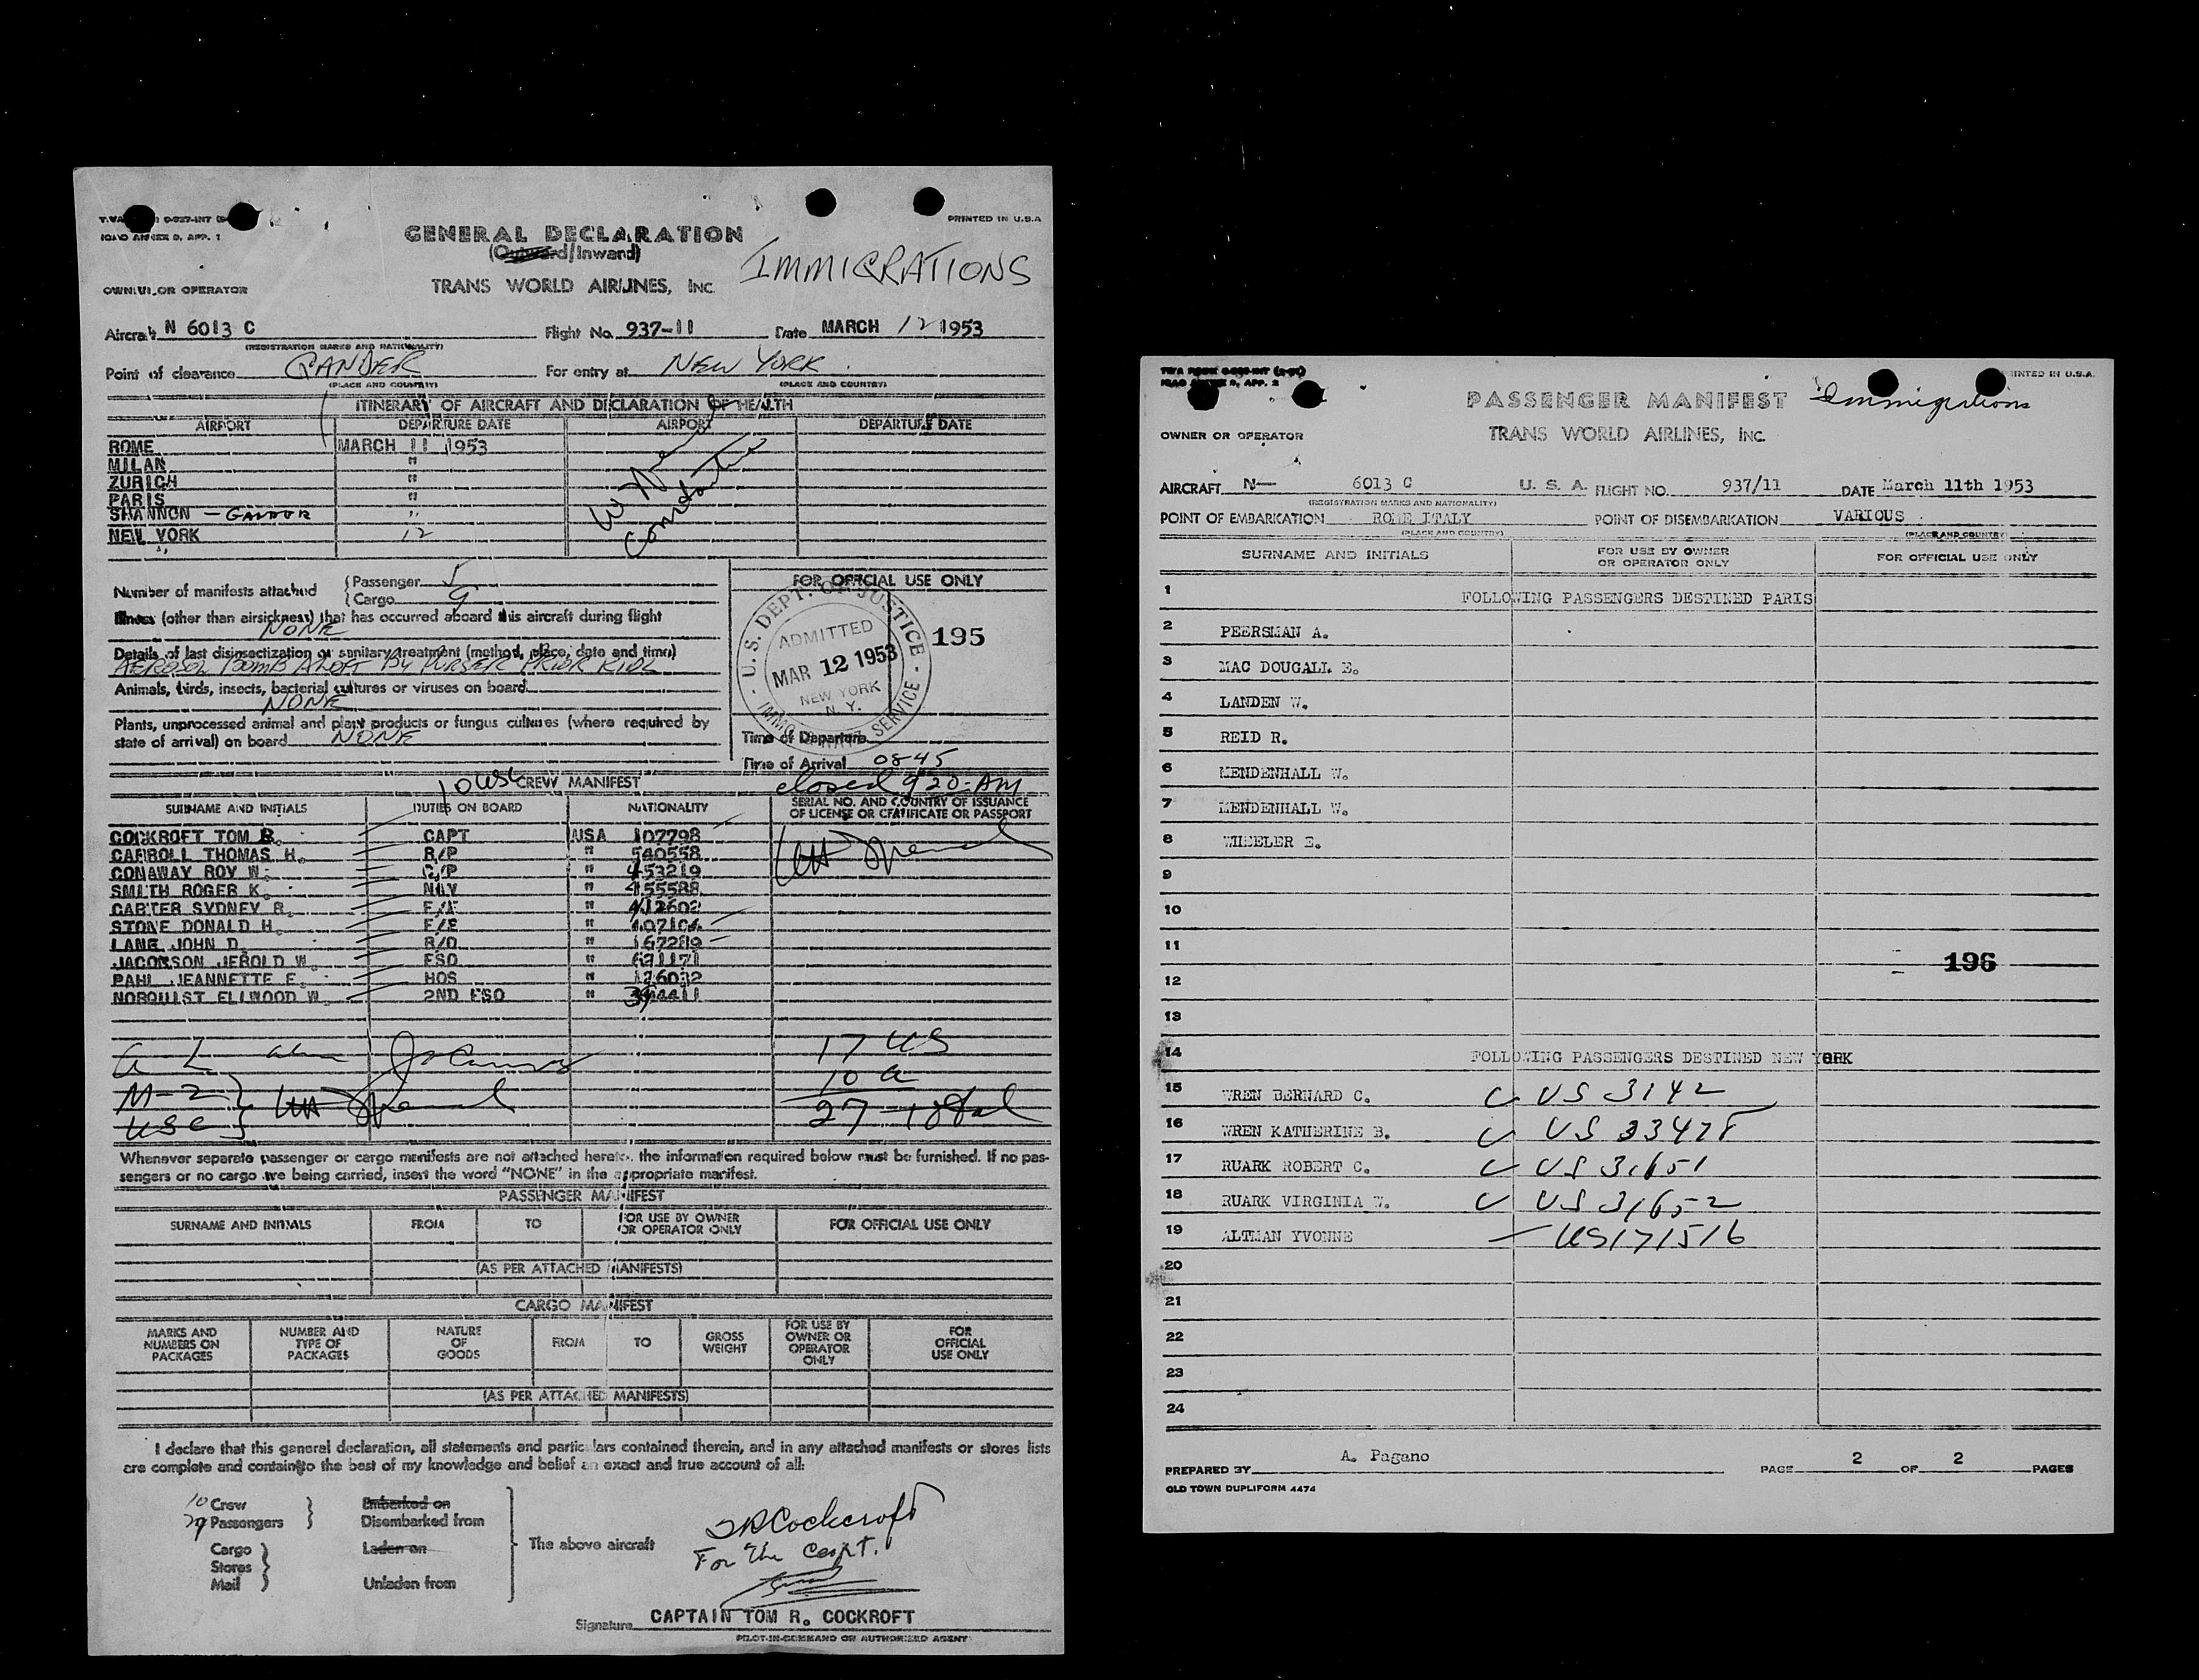 PRINTED IN U.S.A
GENERAL DECLARATION
(Outward/Inward)
IMMIGRATIONS
OWNER OR OPERATOR TRANS WORLD AIRLINES, Inc.
Aircraft N 6013 C Flight No. 937-11 Date MARCH 12 1953
(REGISTRATION MARKS AND NATIONALITY)
Point of clearance GANDER For entry at NEW YORK
(PLACE AND COUNTRY) (PLACE AND COUNTRY)
ITINERARY OF AIRCRAFT AND DECLARATION OF HEALTH
AIRPORT DEPARTURE DATE AIRPORT DEPARTURE DATE
ROME MARCH 11 1953
MILAN "
ZURICH "
PARIS "
SHANNON - GANDER "
NEW YORK 12
Number of manifests attached { Passenger 5
{ Cargo 9
Illness (other than airsickness) that has occurred aboard this aircraft during flight
NONE
Details of last disinsectization or sanitary treatment (method, place, date and time)
AEROSOL BOMB ALOFT BY PURSER PRIOR
Animals, birds, insects, bacterial cultures or viruses on board
NONE
Plants, unprocessed animal and plant products or fungus cultures (where required by
state of arrival) on board NONE
FOR OFFICIAL USE ONLY
U.S. DEPT. OF JUSTICE
ADMITTED
MAR 12 1953
NEW YORK
N. Y.
SERVICE
195
Time of Departure
Time of Arrival 0845
closed 920-AM
10 USC CREW MANIFEST
SURNAME AND INITIALS DUTIES ON BOARD NATIONALITY SERIAL NO. AND COUNTRY OF ISSUANCE
OF LICENSE OR CERTIFICATE OR PASSPORT
COCKROFT TOM R. CAPT USA 107798
CARROLL THOMAS H. R/P " 540558
CONAWAY ROY W. " 453219
SMITH ROGER K. NAV " 455588
CARTER SYDNEY R. " 412602
STONE DONALD H. F/E "
LANE JOHN D. R/O " 167289
JACOBSON JEROLD W. FSO "
PAHL JEANNETTE E. HOS " 126032
NORQUIST ELLWOOD W. 2ND FSO "
17 US
10 a
27 total
M-2
USC
Whenever separate passenger or cargo manifests are not attached hereto, the information required below must be furnished. If no pas-
sengers or no cargo are being carried, insert the word "NONE" in the appropriate manifest.
PASSENGER MANIFEST
SURNAME AND INITIALS FROM TO FOR USE BY OWNER
OR OPERATOR ONLY FOR OFFICIAL USE ONLY
(AS PER ATTACHED MANIFESTS)
CARGO MANIFEST
MARKS AND
NUMBERS ON
PACKAGES NUMBER AND
TYPE OF
PACKAGES NATURE
OF
GOODS FROM TO GROSS
WEIGHT FOR USE BY
OWNER OR
OPERATOR
ONLY FOR
OFFICIAL
USE ONLY
(AS PER ATTACHED MANIFESTS)
I declare that this general declaration, all statements and particulars contained therein, and in any attached manifests or stores lists
are complete and contain to the best of my knowledge and belief an exact and true account of all:
10 Crew } Embarked on
27 Passengers } Disembarked from
Cargo } Laden on The above aircraft
Stores
Mail } Unladen from
TR Cockcroft
For The Capt.
Signature CAPTAIN TOM R. COCKROFT
PILOT-IN-COMMAND OR AUTHORIZED AGENT
PRINTED IN U.S.A.
PASSENGER MANIFEST Immigrations
OWNER OR OPERATOR TRANS WORLD AIRLINES, Inc.
AIRCRAFT N— 6013 C U. S. A. FLIGHT NO. 937/11 DATE March 11th 1953
(REGISTRATION MARKS AND NATIONALITY)
POINT OF EMBARKATION ROME ITALY POINT OF DISEMBARKATION VARIOUS
(PLACE AND COUNTRY) (PLACE AND COUNTRY)
SURNAME AND INITIALS FOR USE BY OWNER
OR OPERATOR ONLY FOR OFFICIAL USE ONLY
1 FOLLOWING PASSENGERS DESTINED PARIS
2 PEERSMAN A.
3 MAC DOUGALL E.
4 LANDEN W.
5 REID R.
6 MENDENHALL W.
7 MENDENHALL W.
8 WHEELER E.
9
10
11
196
12
13
14 FOLLOWING PASSENGERS DESTINED NEW YORK
15 WREN BERNARD C. US 3142
16 WREN KATHERINE B. US 33478
17 RUARK ROBERT C. US 31651
18 RUARK VIRGINIA W. US 31652
19 ALTMAN YVONNE US171516
20
21
22
23
24
PREPARED BY A. Pagano PAGE 2 OF 2 PAGES
OLD TOWN DUPLIFORM 4474